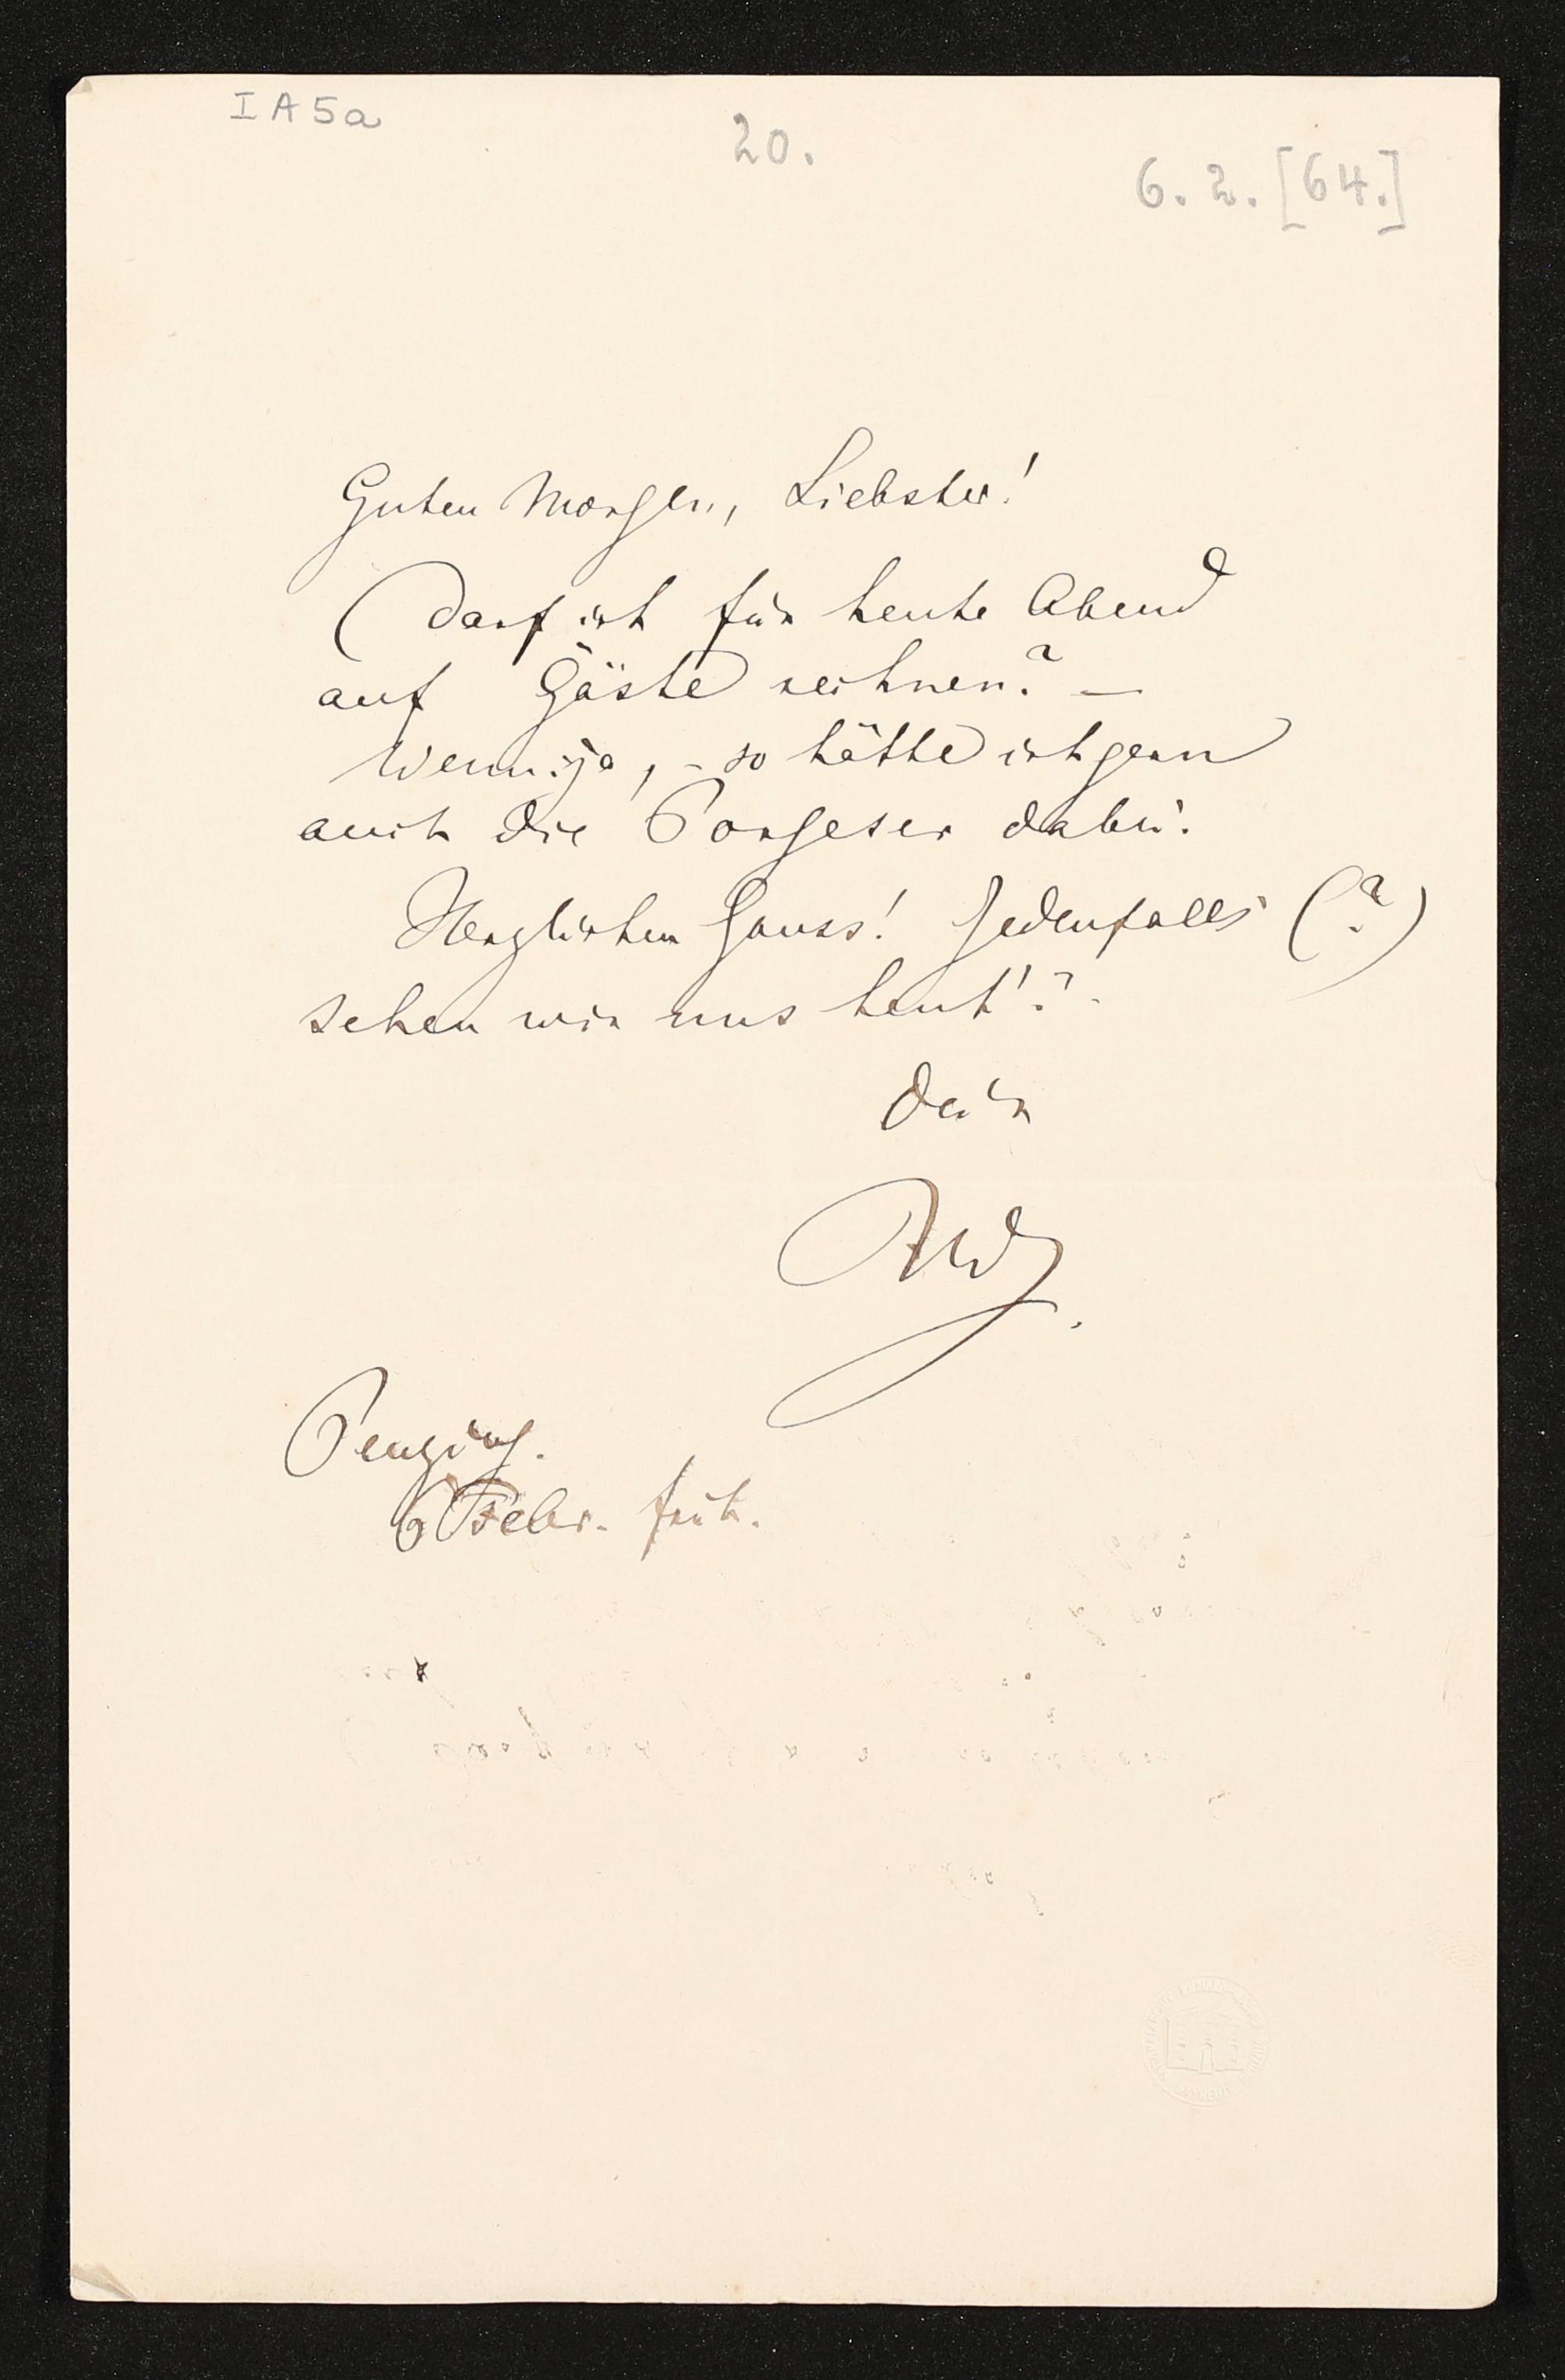 I A 5 a
20.
6. 2. [64.]
Guten Morgen, Liebster!
Darf ich für heute Abend
auf Gäste rechnen? —
Wenn ja, - so hätte ich gern
auch die Porgeser dabei.
Herzlichen Gruss! Jedenfalls (?)
sehen wir uns heut'?
Dein
RW.
Penzing.
6 Febr. früh.